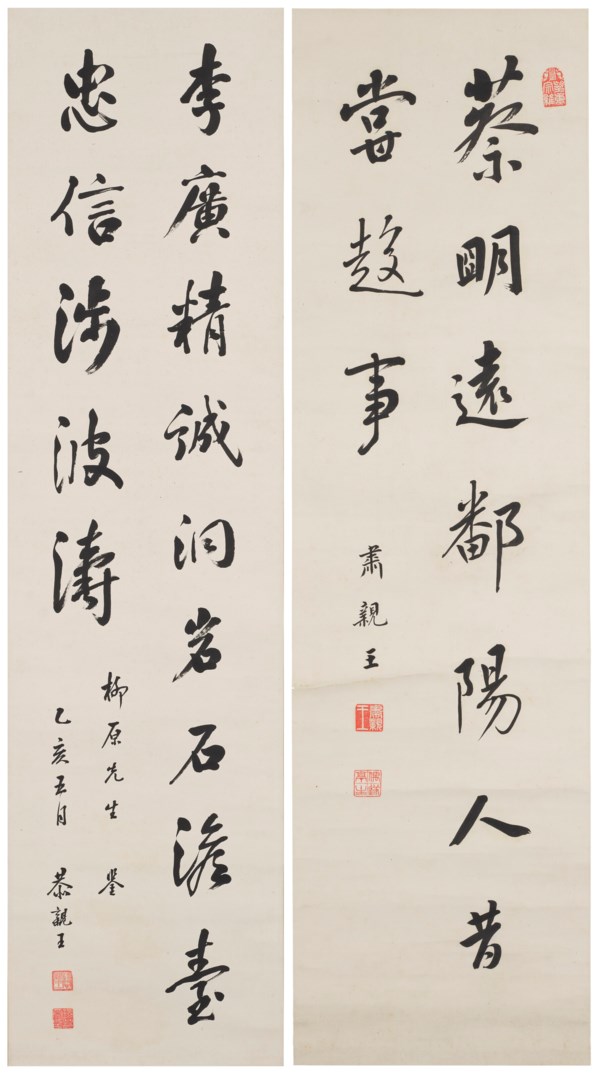 蔡明遠鄱陽人昔
嘗趍事
肅親王
李廣精誠洞岩石澹臺
忠信涉波濤
柳原先生 鑒
乙亥五月 恭親王